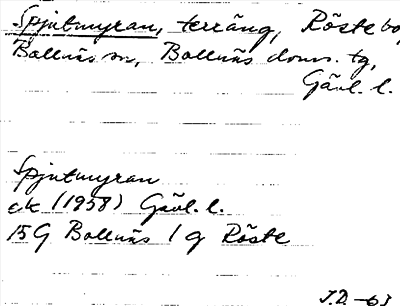 Spjutmyran, terräng, Röste by,
Bollnäs sn, Bollnäs doms. tg,
Gävl. l.
Spjutmyran
ek (1958) Gävl. l.
15G Bollnäs 1 g Röste
J.D. -63